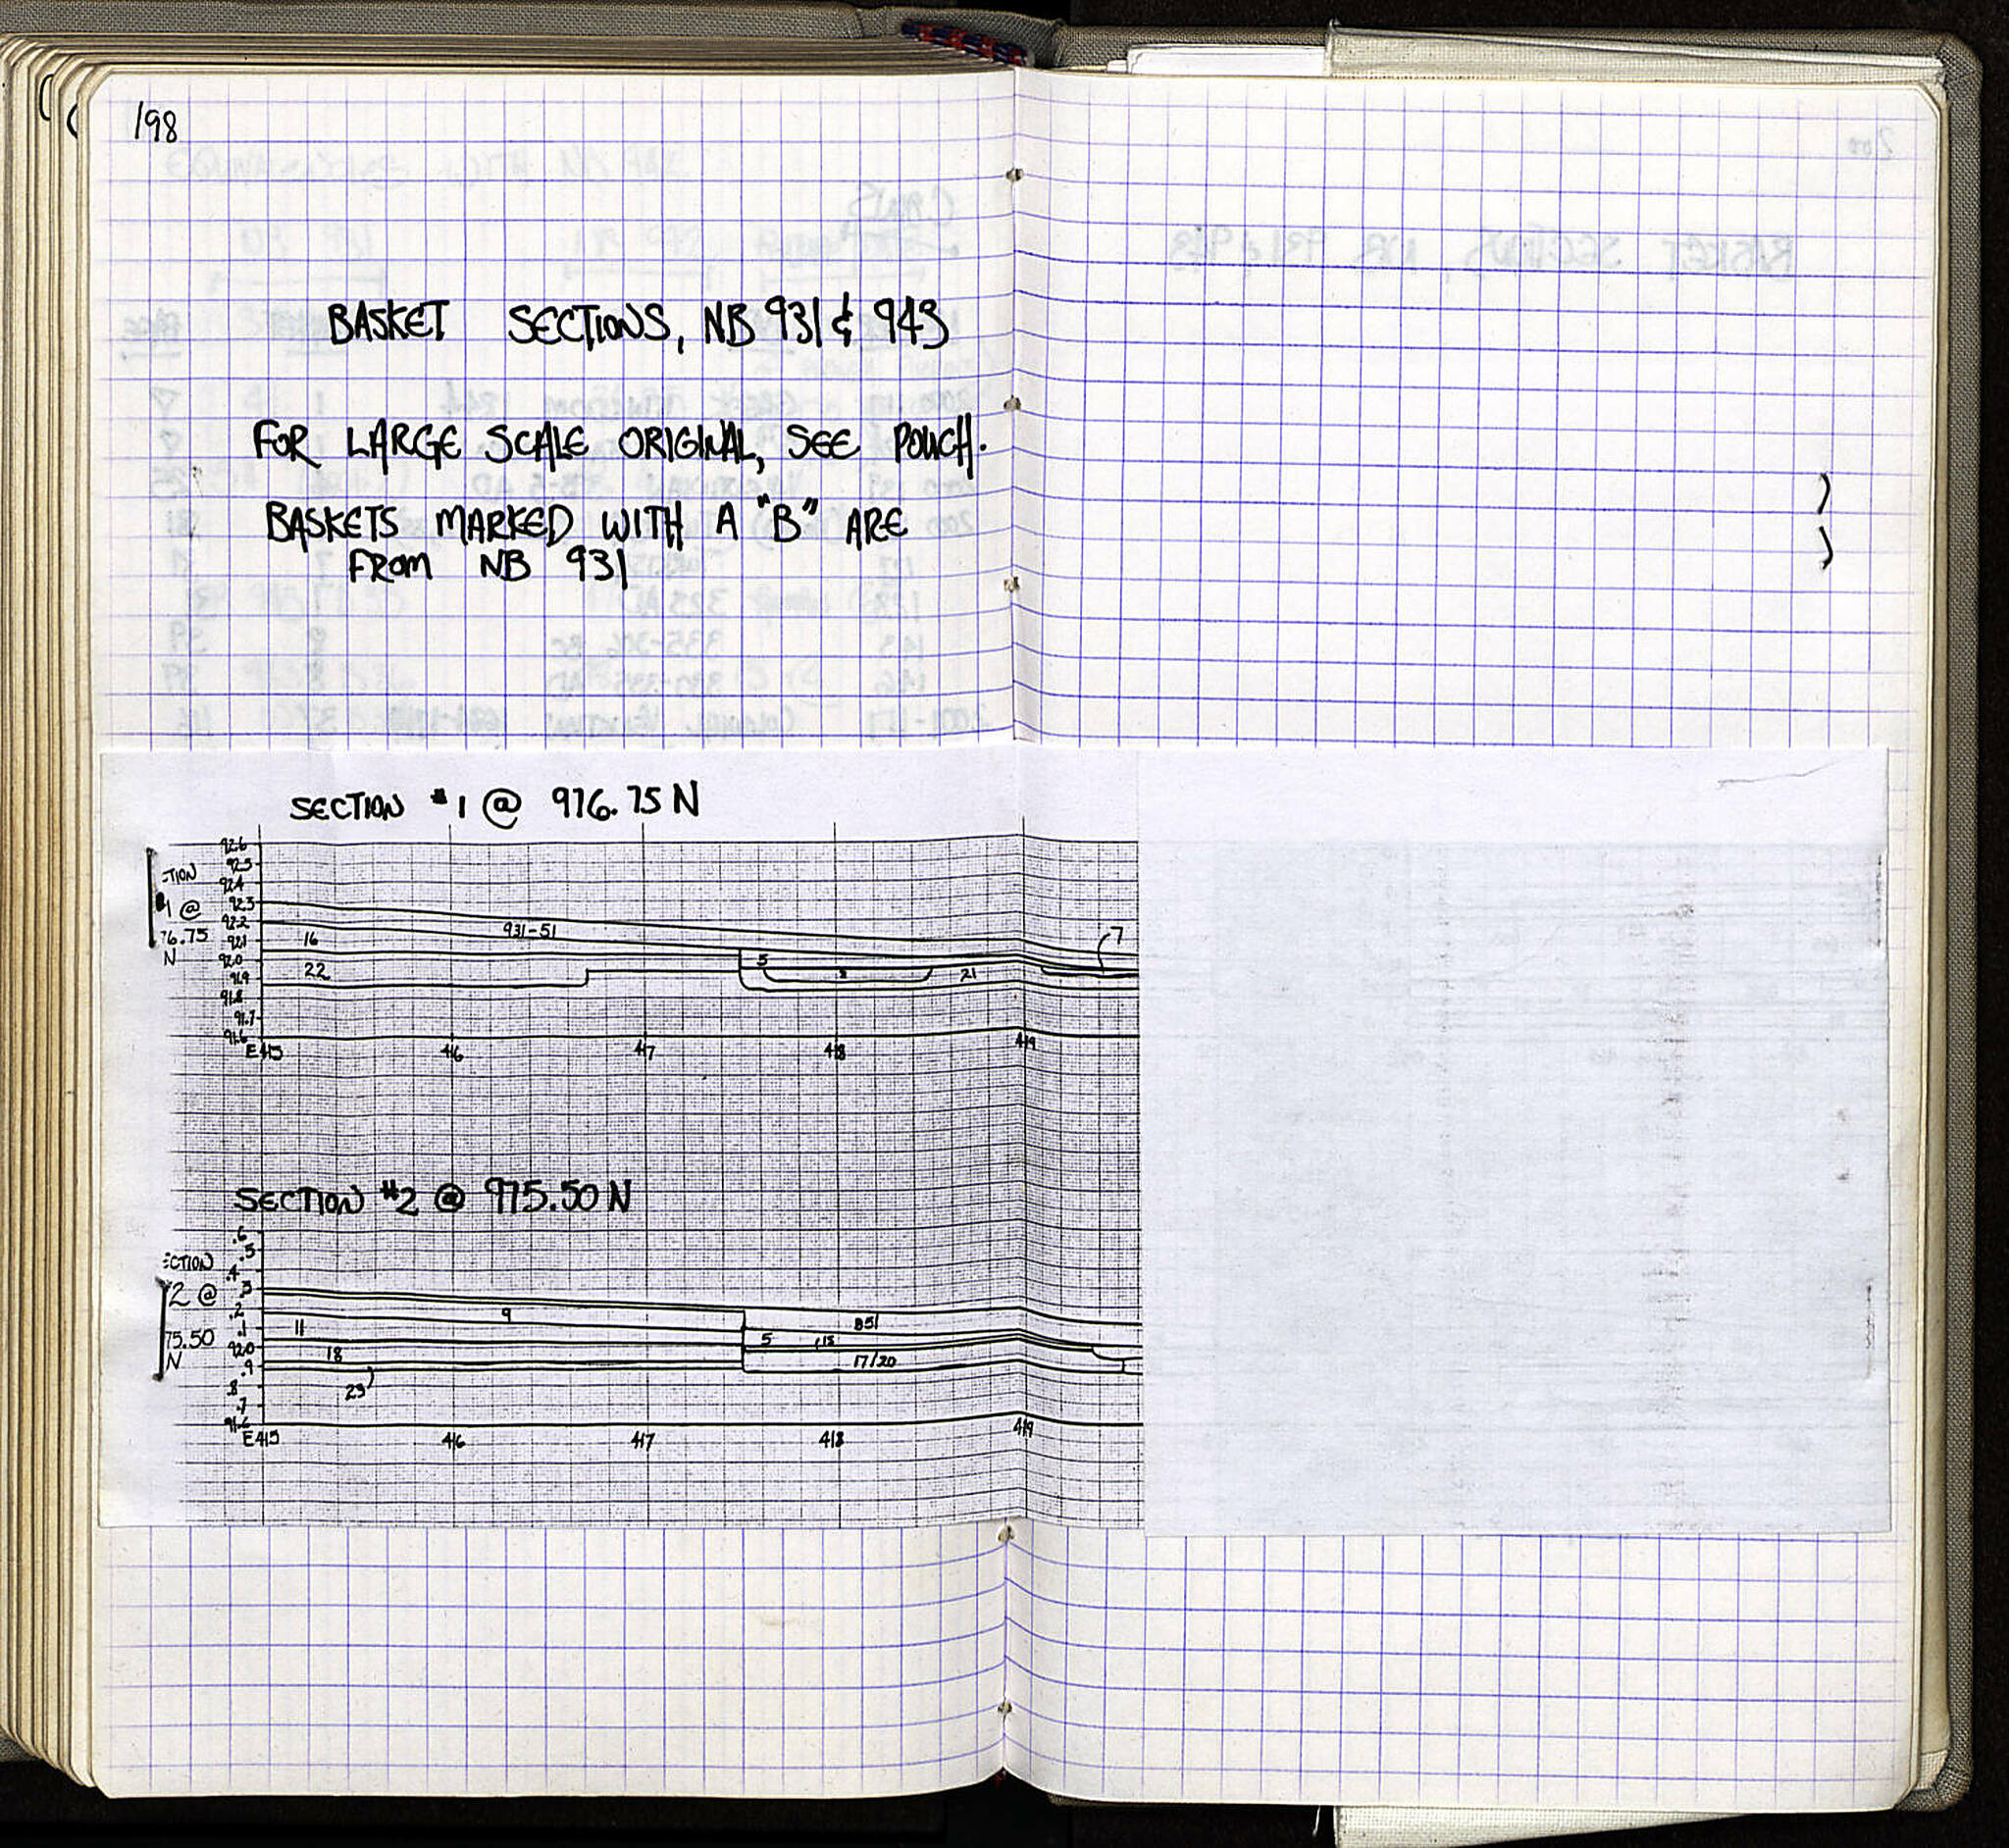 198
BASKET SECTIONS, NB 931 & 943
FOR LARGE SCALE ORIGINAL, SEE POUCH.
BASKETS MARKED WITH A "B" ARE
FROM NB 931
SECTION #1 @ 976.75 N
CTION
#1 @
76.75
N
92.6
92.5
92.4
92.3
92.2
92.1
92.0
91.9
91.8
91.7
91.6
931-51
16
22
5
8
21
7
E415 416 417 418 419
SECTION #2 @ 975.50 N
ECTION
#2 @
75.50
N
.6
.5
.4
.3
.2
.1
92.0
.9
.8
.7
91.6
9
B51
11
5
13
18
17/20
23
E415 416 417 418 419